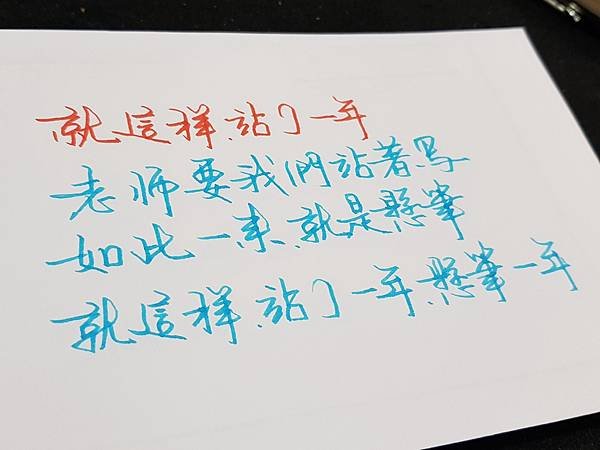 就這样.站了一年
老师要我們站着写
如此一来.就是懸筆
就這样.站了一年.懸筆一年